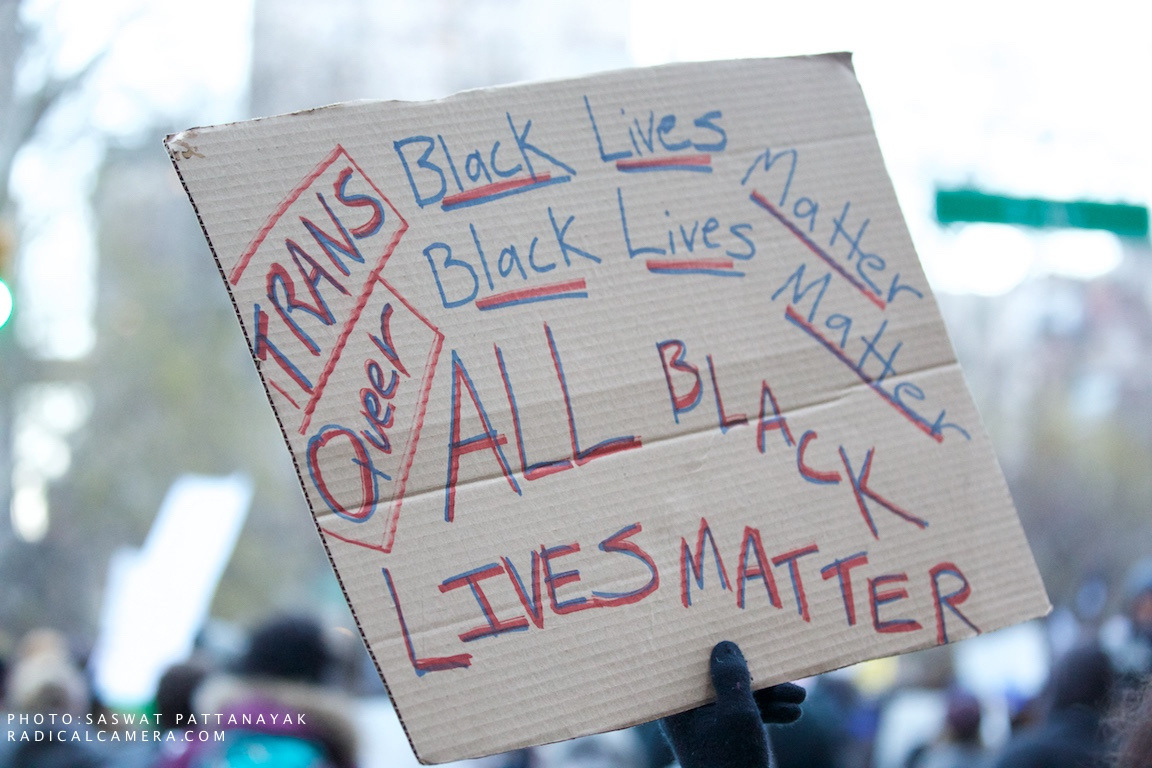 TRANS Black Lives Matter
Queer Black Lives Matter
ALL BLACK
LIVES MATTER
PHOTO: SASWAT PATTANAYAK
RADICALCAMERA.COM